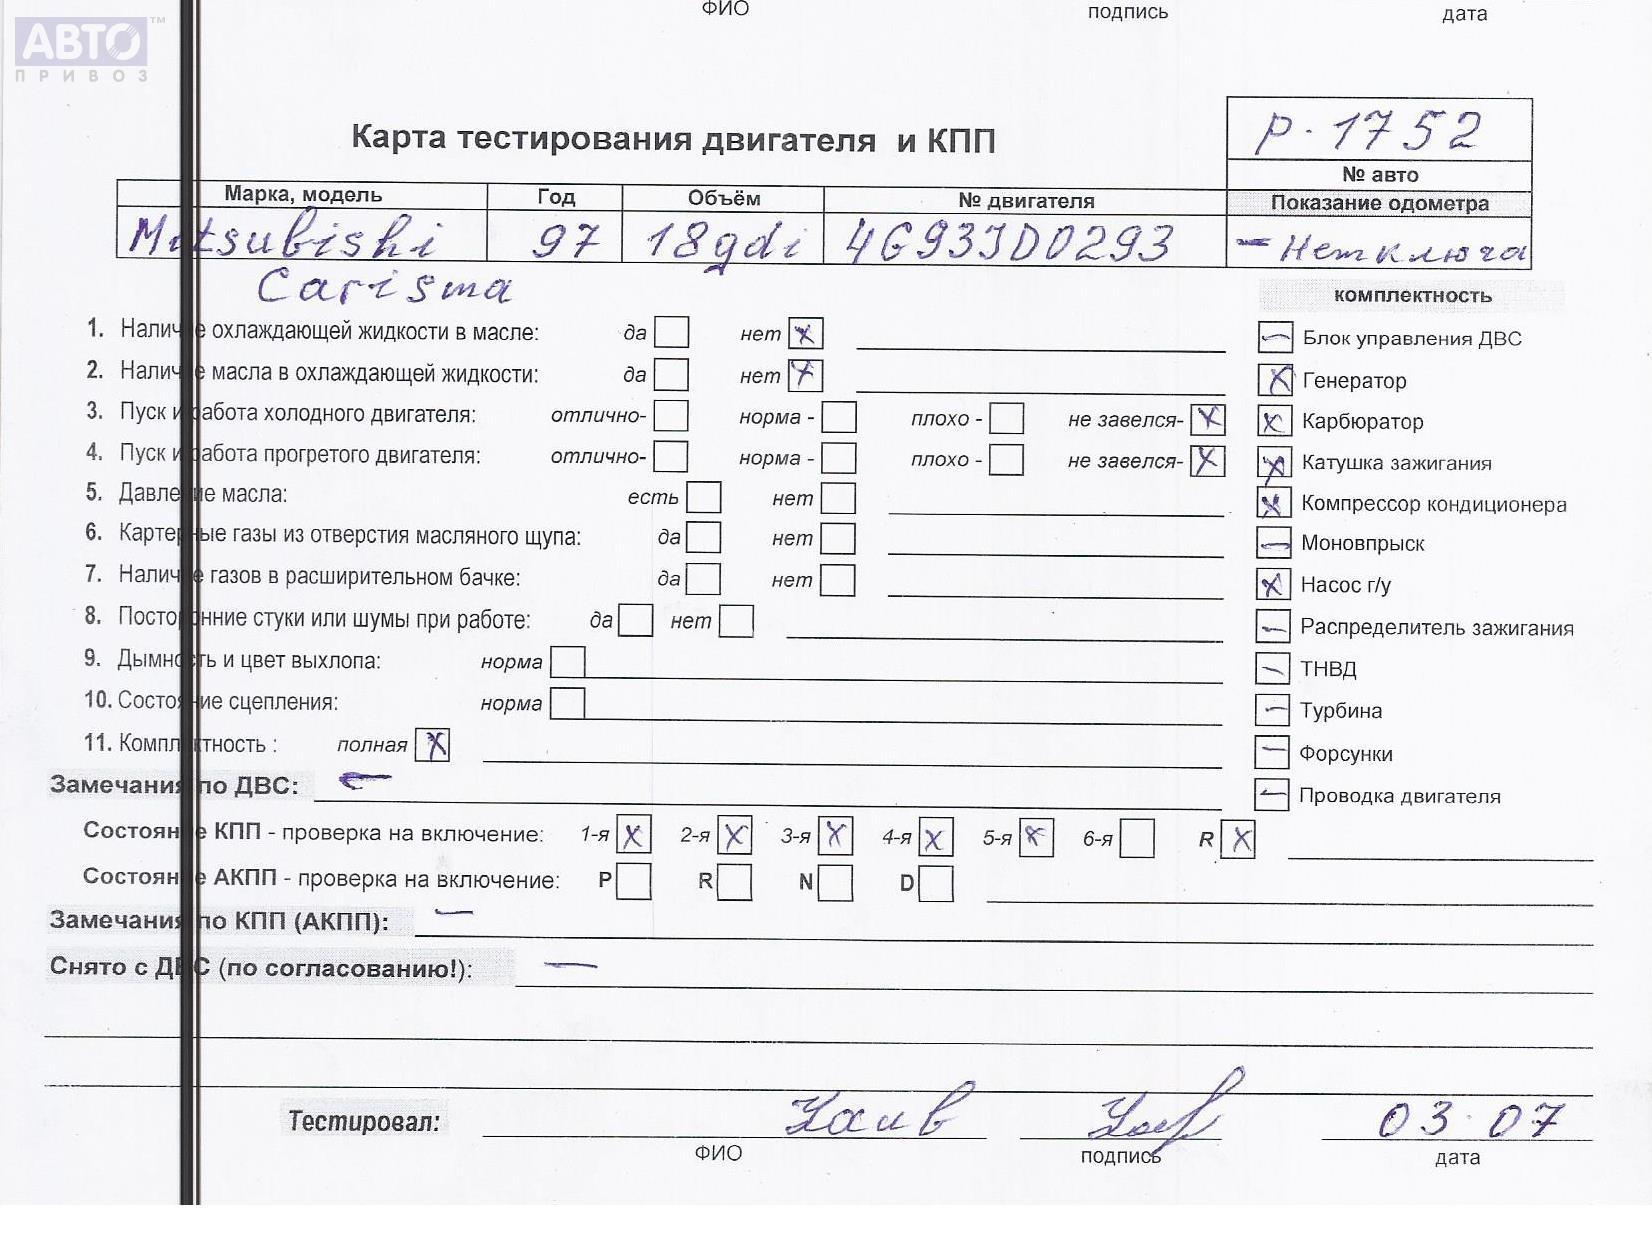 АВТО™
ПРИВОЗ
ФИО подпись дата
Карта тестирования двигателя и КПП
р-1752
№ авто
Марка, модель Год Объём № двигателя Показание одометра
Mitsubishi 97 18gdi 4G93JD0293 – Нет ключа
Carisma
комплектность
1. Наличие охлаждающей жидкости в масле: да нет x
Блок управления ДВС
2. Наличие масла в охлаждающей жидкости: да нет x
Генератор
3. Пуск и работа холодного двигателя: отлично- норма - плохо - не завелся- x
Карбюратор
4. Пуск и работа прогретого двигателя: отлично- норма - плохо - не завелся- x
Катушка зажигания
5. Давление масла: есть нет
Компрессор кондиционера
6. Картерные газы из отверстия масляного щупа: да нет
Моновпрыск
7. Наличие газов в расширительном бачке: да нет
Насос г/у
8. Посторонние стуки или шумы при работе: да нет
Распределитель зажигания
9. Дымность и цвет выхлопа: норма
ТНВД
10. Состояние сцепления: норма
Турбина
11. Комплектность : полная x
Форсунки
Замечания по ДВС: –
Проводка двигателя
Состояние КПП - проверка на включение: 1-я x 2-я x 3-я x 4-я x 5-я x 6-я R x
Состояние АКПП - проверка на включение: P R N D
Замечания по КПП (АКПП): –
Снято с ДВС (по согласованию!): –
Тестировал: 03.07
ФИО подпись дата